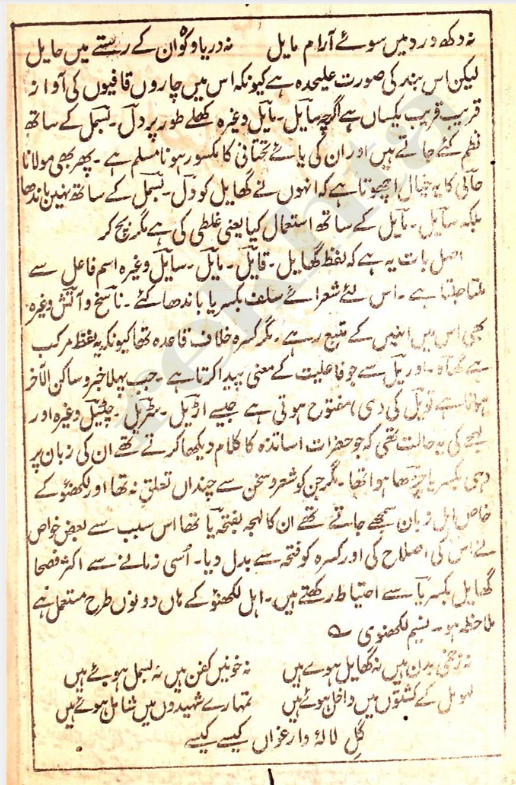 نہ دکھ درد میں سوئے آرام مایل نہ دریا و کوہ ان کے رستے میں حایل
لیکن اس بند کی صورت علیحدہ ہے کیونکہ اس میں چاروں قافیوں کی آواز
قریب قریب یکساں ہے اگرچہ سایل۔ مایل وغیرہ کھلے طور پر دل۔ بسمل کے ساتھ
نظم کئے جاتے ہیں اور ان کی یائے تحتانی کا مکسور ہونا مسلم ہے۔ پھر بھی مولانا
حالی کا یہ خیال اچھوتا ہے کہ انہوں نے گھایل کو دل۔ بسمل کے ساتھ نہیں باندھا
بلکہ سایل۔ مایل کے ساتھ استعمال کیا یعنی غلطی کی ہے مگر بچ کر
اصل بات یہ ہے کہ لفظ گھایل۔ قایل۔ مایل۔ سایل وغیرہ اسم فاعل سے
ملتا جلتا ہے۔ اس لئے شعرائے سلف بکسر یا باندھا کئے۔ ناسخ و آتش وغیرہ
بھی اس میں انہیں کے متبع رہے۔ مگر کسرہ خلاف قاعدہ تھا کیونکہ یہ لفظ مرکب
ہے گھاؤ۔ اور یل سے جو فاعلیت کے معنی پیدا کرتا ہے۔ جب پہلا جزو ساکن الآخر
ہوتا ہے تو یل کی (ی) مفتوح ہوتی ہے جیسے اڑیل۔ سڑیل۔ چٹیل وغیرہ اور
لہجے کی یہ حالت تھی کہ جو حضرات اساتذہ کا کلام دیکھا کرتے تھے ان کی زبان پر
وہی بکسر یا چڑھا ہوا تھا۔ مگر جن کو شعر و سخن سے چنداں تعلق نہ تھا اور لکھنؤ کے
خاص اہل زبان سمجھے جاتے تھے ان کا لہجہ بفتحہ یا تھا اس سبب سے بعض خواص
نے اس کی اصلاح کی اور کسرہ کو فتحہ سے بدل دیا۔ اسی زمانے سے اکثر فصحا
گھایل بکسر یا سے احتیاط رکھتے ہیں۔ اہل لکھنؤ کے ہاں دونوں طرح مستعمل ہے
ملاحظہ ہو۔ نسیم لکھنوی ؎
نہ زخمی بدن ہیں نہ گھایل ہوے ہیں نہ خونیں کفن ہیں نہ بسمل ہوئے ہیں
لہو مل کے کشتوں میں داخل ہوئے ہیں تمہارے شہیدوں میں شامل ہوئے ہیں
گل لالہ و ارغواں کیسے کیسے
rekhta